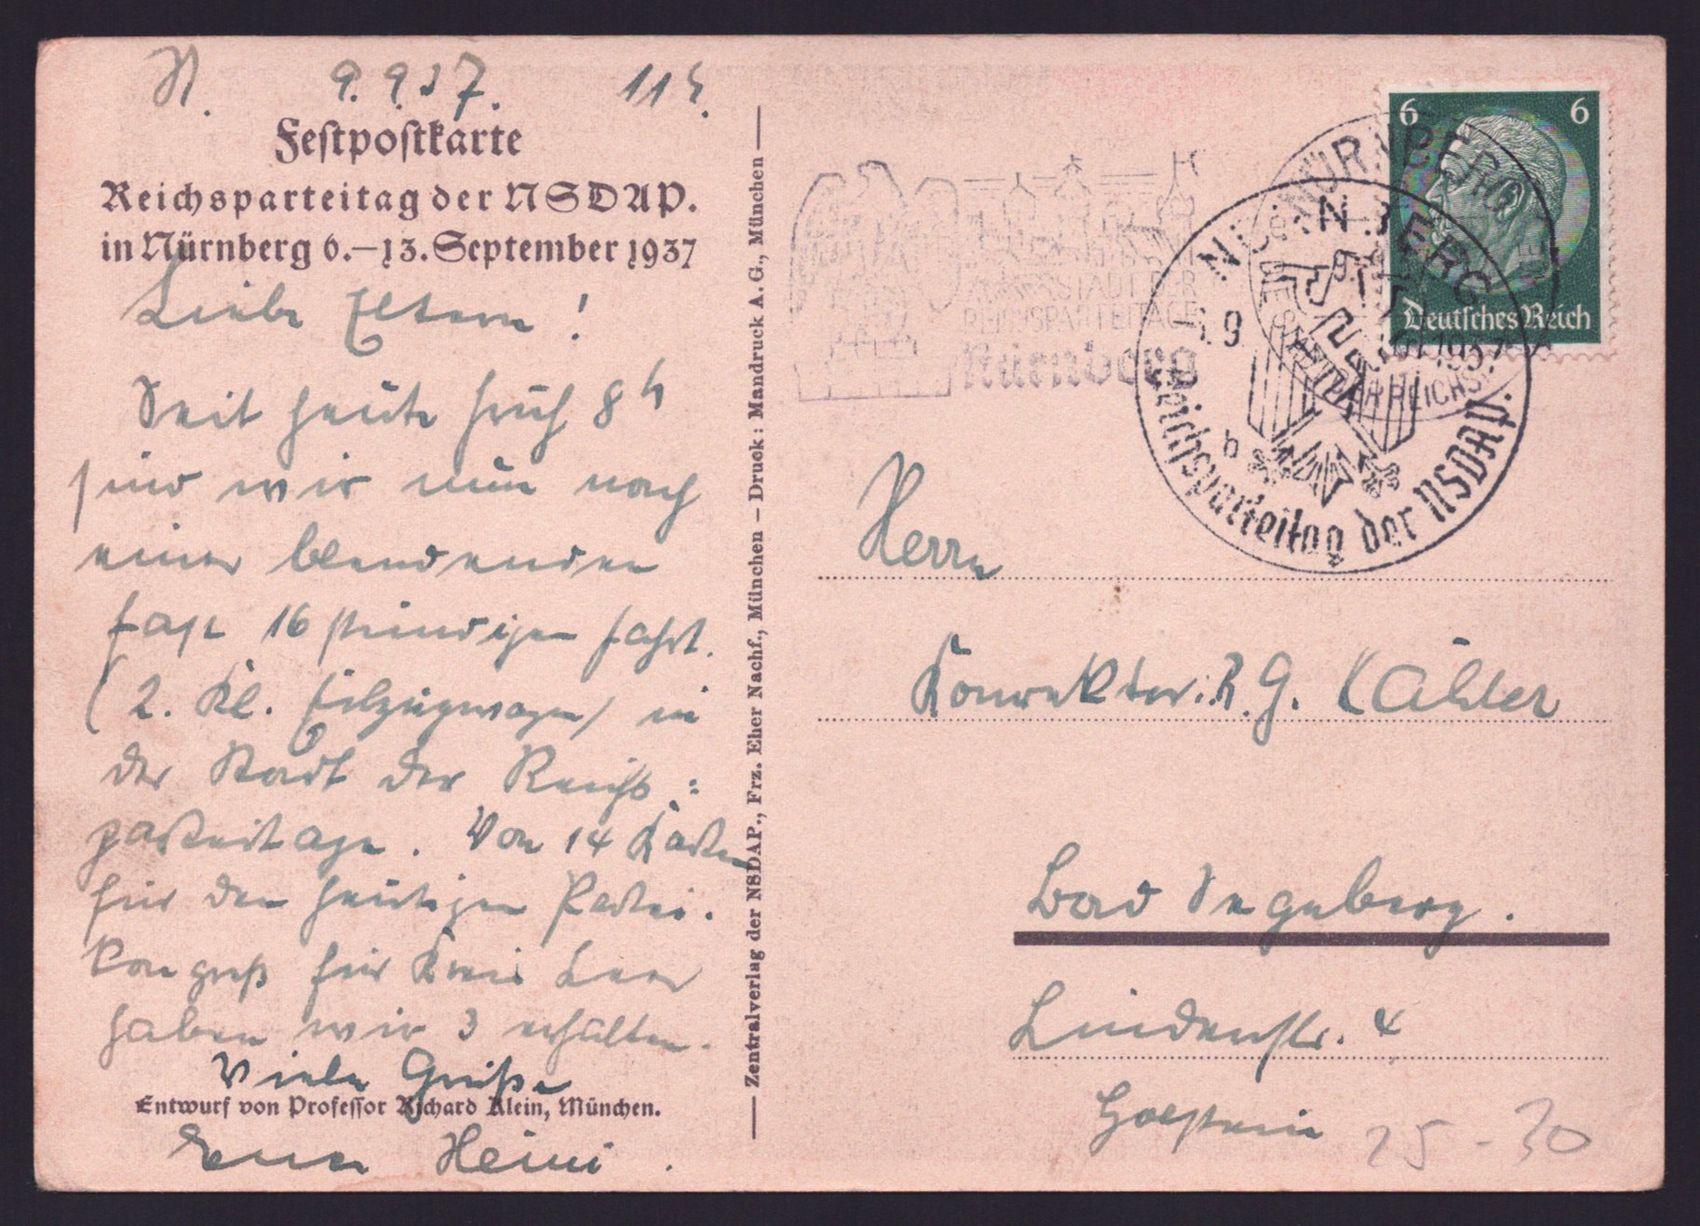 N. 9.9.37. 11h.
Festpostkarte
Reichsparteitag der NSDAP.
in Nürnberg 6.–13. September 1937
Liebe Eltern!
Seit heute früh 8h
sind wir nun nach
einer blendenden
fast 16 stündigen Fahrt.
(2. Kl. Eilzugwagen) in
der Stadt der Reichs:
parteitage. Von 14 Karten
für den heutigen Partei.
kongreß für Kreis Leer
haben wir 3 erhalten.
Viele Grüße
Entwurf von Professor Richard Klein, München.
Euer Heini.
Zentralverlag der NSDAP., Frz. Eher Nachf., München – Druck: Mandruck A. G., München
STADT DER
REICHSPARTEITAGE
Nürnberg
NÜRNBERG
Reichsparteitag der NSDAP.
b
6 6
Deutsches Reich
Herrn
Konrektor: R. G. Kähler
Bad Segeberg.
Lindenstr. 4
Holstein
25-30